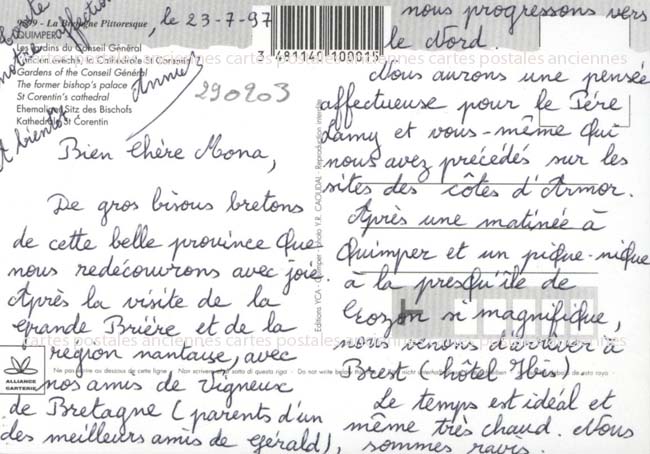 , le 23-7-97
9999 - La Bretagne Pittoresque
QUIMPER
Les Jardins du Conseil Général
l'ancien évêché, la Cathédrale St Corentin
Gardens of the Conseil Général
The former bishop's palace
St Corentin's cathedral
Ehemaliger Sitz des Bischofs
Kathedrale St Corentin
3 481140 100015
290203
Bien Chère Mona,
De gros bisous bretons
de cette belle province que
nous redécouvrons avec joie.
Après la visite de la
Grande Brière et de la
région nantaise, avec
nos amis de Vigneux
de Bretagne (parents d'un
des meilleurs amis de Gérald),
nous progressons vers
le Nord.
Nous aurons une pensée
affectueuse pour le Père
Lamy et vous-même qui
nous avez précédés sur les
sites des côtes d'Armor.
Après une matinée à
Quimper et un pique-nique
à la presqu'île de
Crozon si magnifique,
nous venons d'arriver à
Brest (hôtel Ibis).
Le temps est idéal et
même très chaud. Nous
sommes ravis.
toute
notre affection
A bientôt
Annie
Editions YCA - Quimper - photo Y.R. CAOUDAL - Reproduction interdite
ALLIANCE
CARTERIE
Ne pas écrire au dessous de cette ligne - Non scrivere al di sotto di questa riga - Do not write below
cartes postales anciennes cartes postales anciennes cartes postales anciennes
cartes postales anciennes cartes postales anciennes cartes postales anciennes